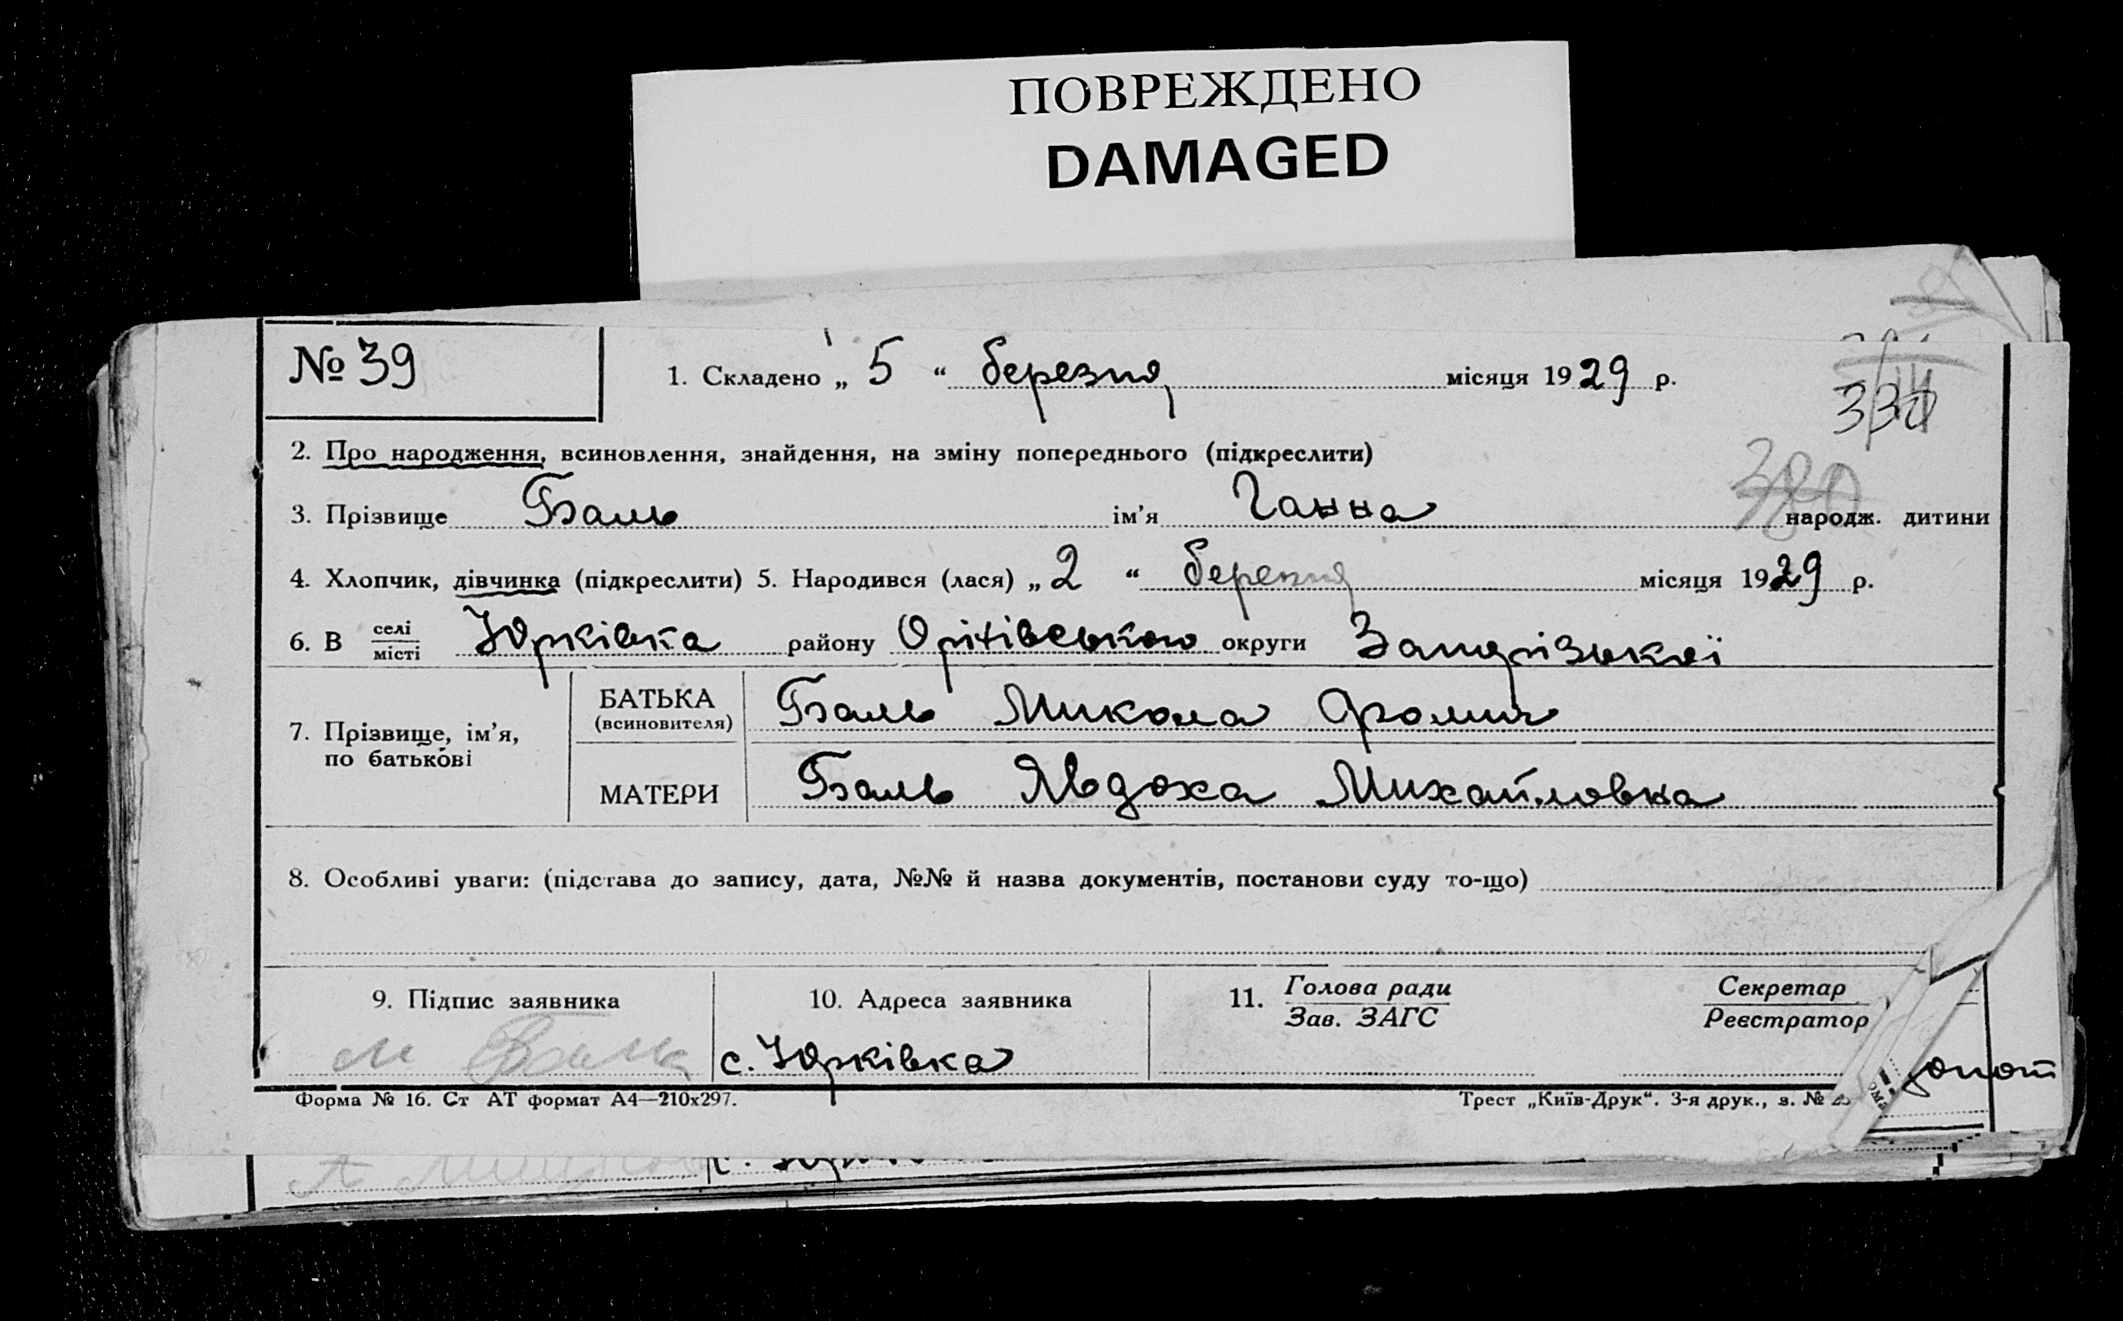 ПОВРЕЖДЕНО
DAMAGED
№ 39
1. Складено „ 5 “ березня місяця 1929 р.
330
2. Про народження, всиновлення, знайдення, на зміну попереднього (підкреслити)
380
3. Прізвище Баль ім’я Ганна народж. дитини
4. Хлопчик, дівчинка (підкреслити) 5. Народився (лася) „ 2 “ березня місяця 1929 р.
6. В селі/місті Юрківка району Оріхівського округи Запорізької
7. Прізвище, ім’я, по батькові
БАТЬКА (всиновителя) Баль Микола Фромич
МАТЕРИ Баль Явдоха Михайловна
8. Особливі уваги: (підстава до запису, дата, №№ й назва документів, постанови суду то-що)
9. Підпис заявника
10. Адреса заявника
11. Голова ради/Зав. ЗАГС
Секретар/Реєстратор
М Баль
с. Юрківка
Форма № 16. Ст АТ формат А4—210х297.
Трест „Київ-Друк“. 3-я друк., з. №